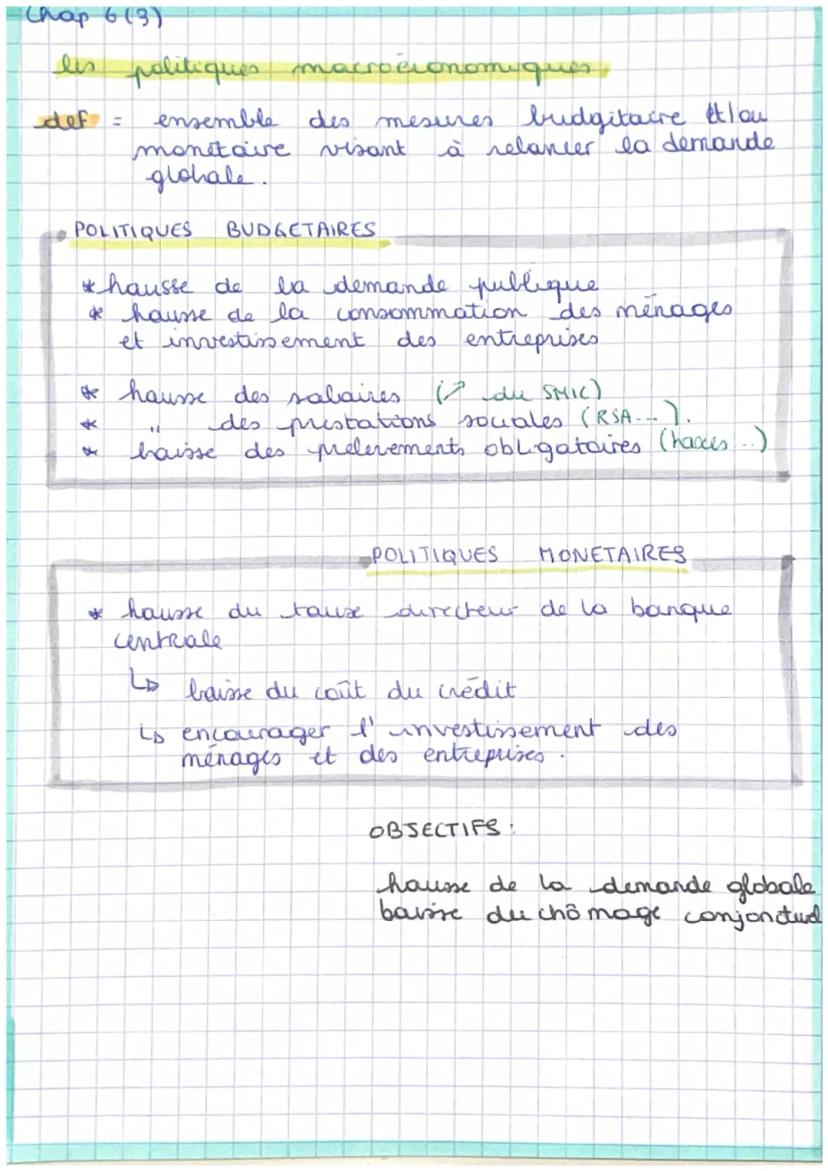 Chap 6(3)
les politiques macroéconomiques
def = ensemble des mesures budgitaire et/ou
monétaire visant à relancer la demande
globale.
POLITIQUES BUDGETAIRES
* hausse de la demande publique
* hausse de la consommation des ménages
et investissement des entreprises
* hausse des salaires (↗ du SMIC)
* " des prestations sociales (RSA...).
* baisse des prélevements obligatoires (taxes...)
POLITIQUES MONETAIRES
* hausse du taux directeur de la banque
centrale
↳ baisse du coût du crédit
↳ encourager l'investissement des
ménages et des entreprises.
OBJECTIFS :
hausse de la demande globale
baisse du chômage conjonctuel